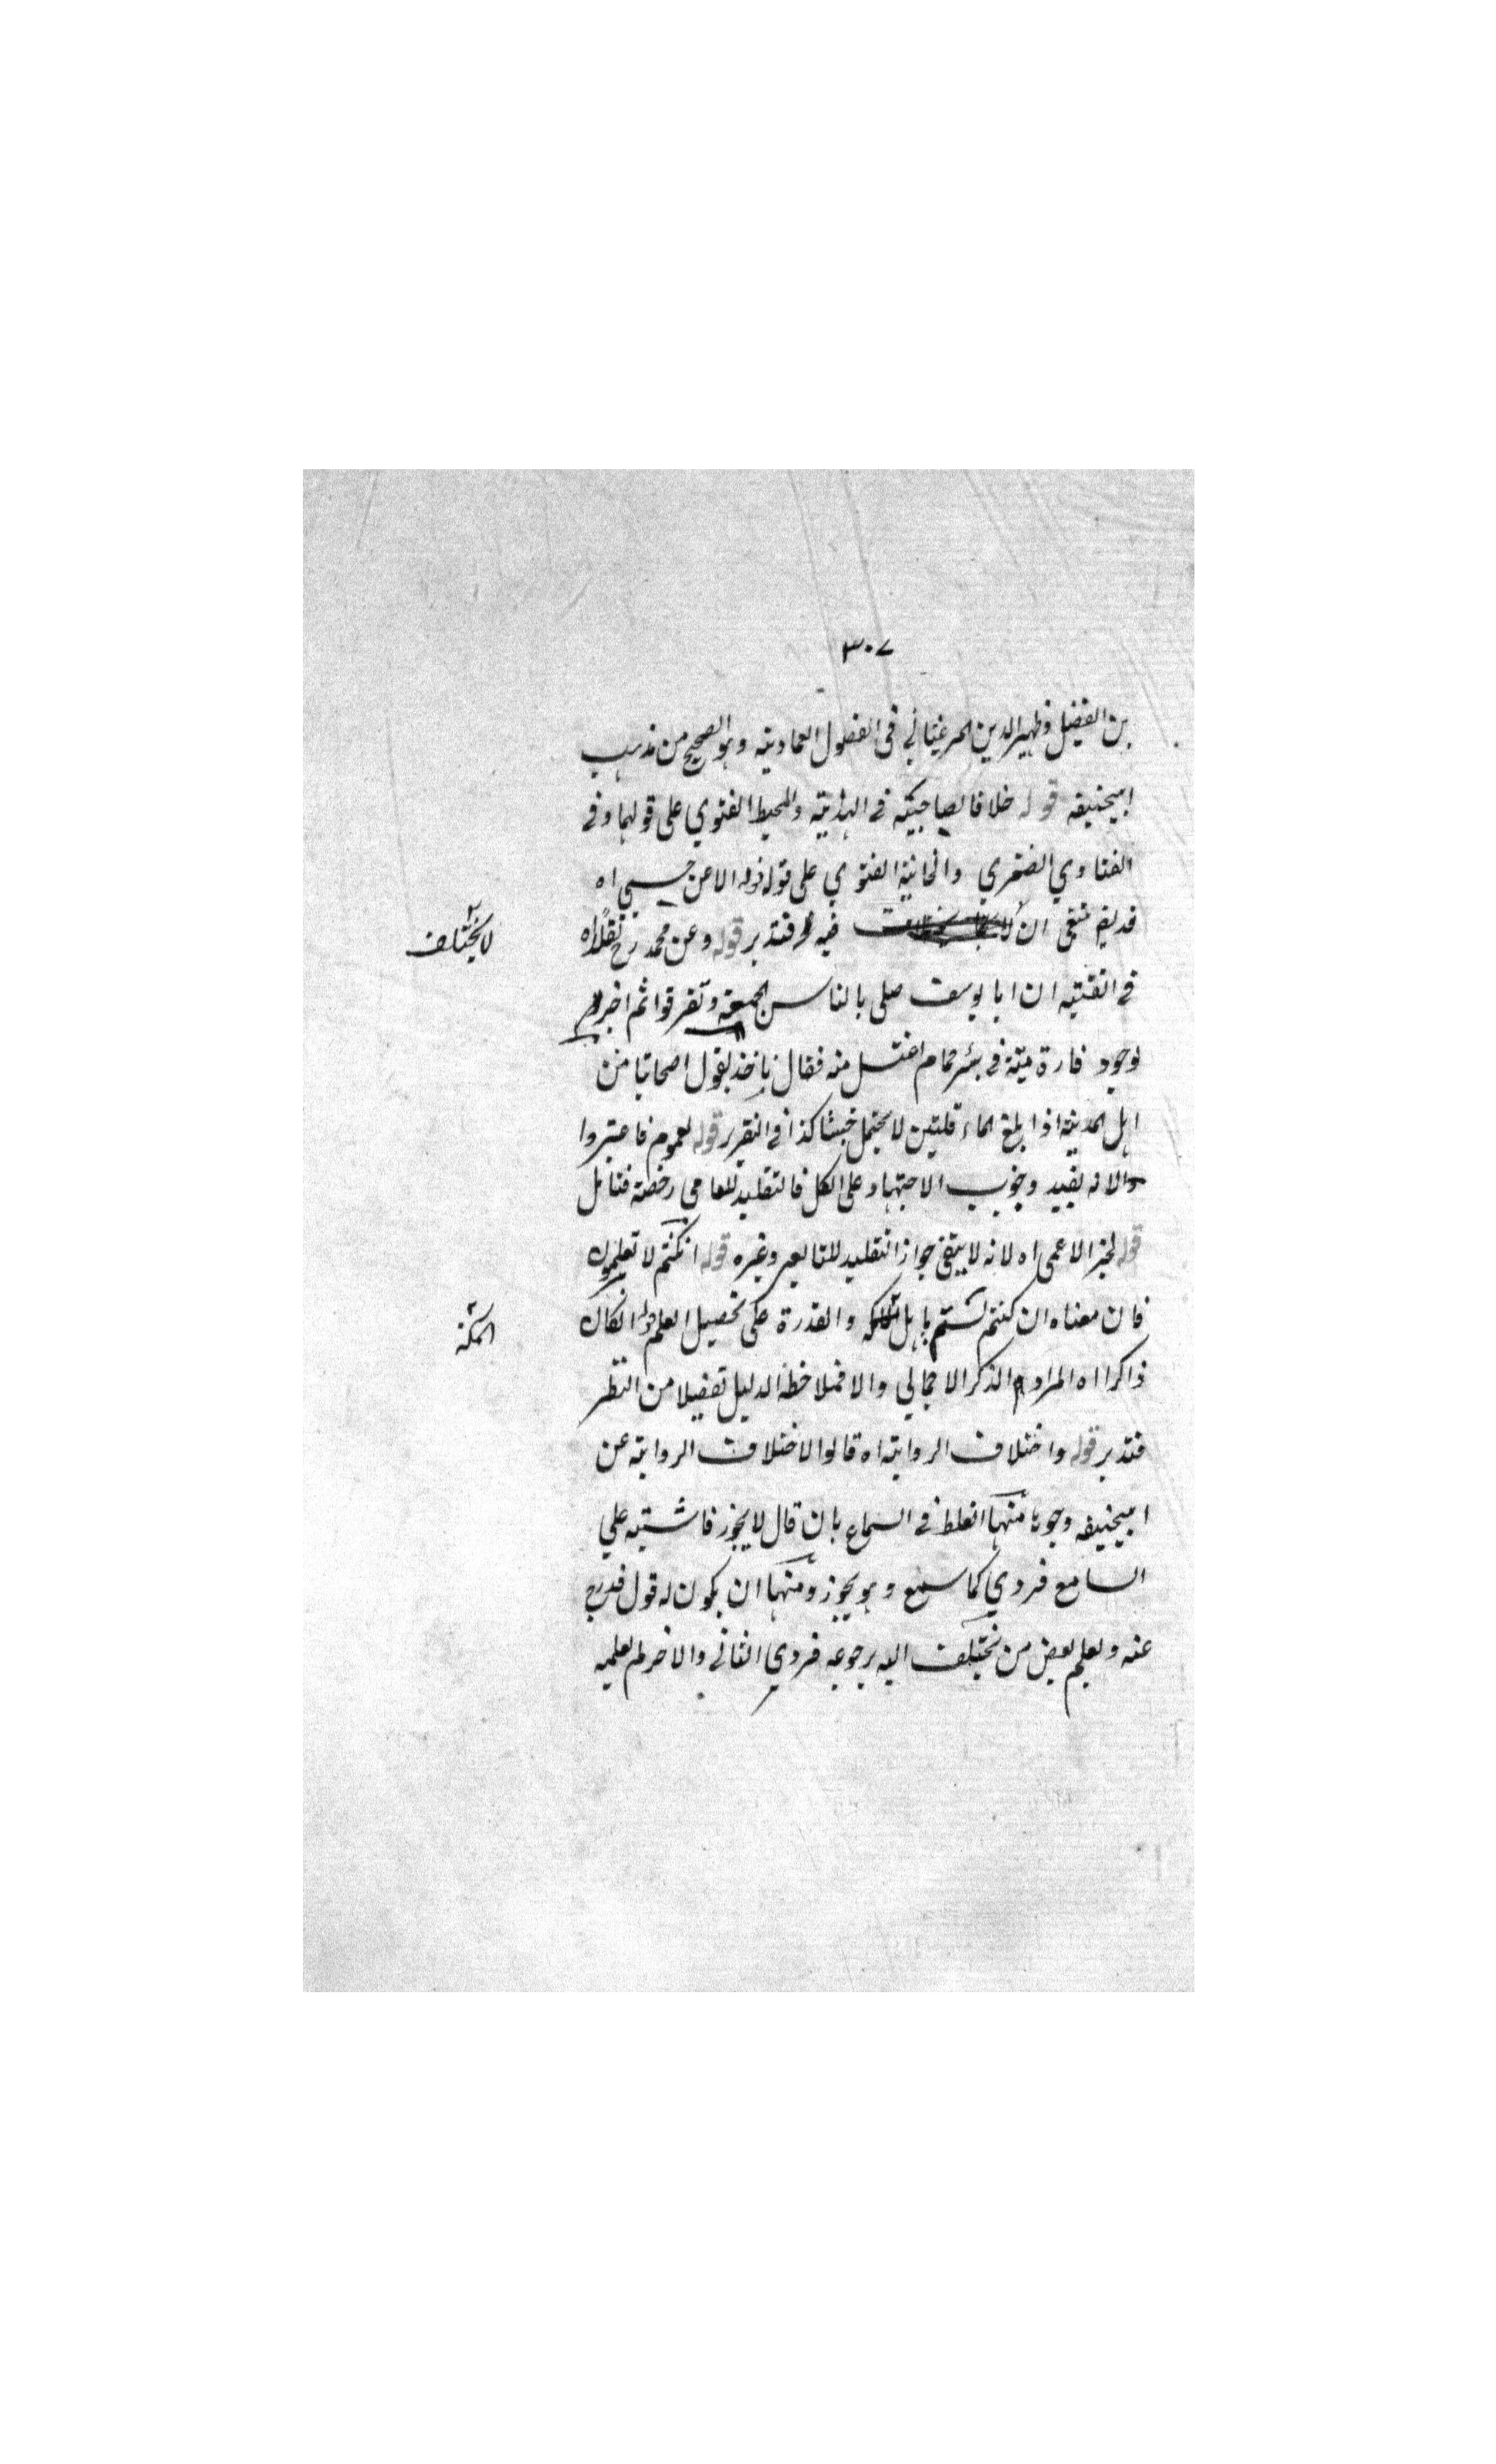 ٣٠٧
بن الفضيل وظهير الدين المرغيناني في الفصول العمادية وهو الصحيح من مذهب
ابيحنيفه قوله خلافا لصاحبيه في الهداية والمحيط الفتوي على قولهما وفي
الفتاوي الصغري والخانية الفتوي على قوله قوله الا عن حسي اه
ان فيه فتدبر قوله وعن محمد رح نقلا اه
لا يختلف
في القنية ان ابا يوسف صلى بالناس الجمعة وتفرقوا ثم اخبر
لوجود فارة ميتة في بئر حمام اغتسل منه فقال ناخذ بقول اصحابنا من
اهل المدينة اذا بلغ الماء قلتين لا يحتمل خبثا كذا في التقرير قوله لعموم فاعتبروا
والا نه يفيد وجوب الاجتهاد على الكل فالتقليد للعامي رخصة فتامل
قوله لجز الاعمى اه لانه لا يبقى جواز التقليد للتابعي وغيره قوله ان كنتم لا تعلمون
فان معناه ان كنتم لستم باهل والقدرة على تحصيل العلم قوله ان كان
الملكة
ذاكرا اه المراد الذكر الاجمالي والا فملاحظة الدليل تفصيلا من النظر
فتدبر قوله واختلاف الرواية اه قالوا لاختلاف الرواية عن
ابيحنيفه وجوها منها الغلط في السماع بان قال لا يجوز فاشتبه علي
السامع فروي كما سمع وهو يجوز ومنها ان يكون له قول قد رجع
عنه ولعلم بعض من يختلف اليه برجوعه فروي الثاني والاخر لم يعلمه